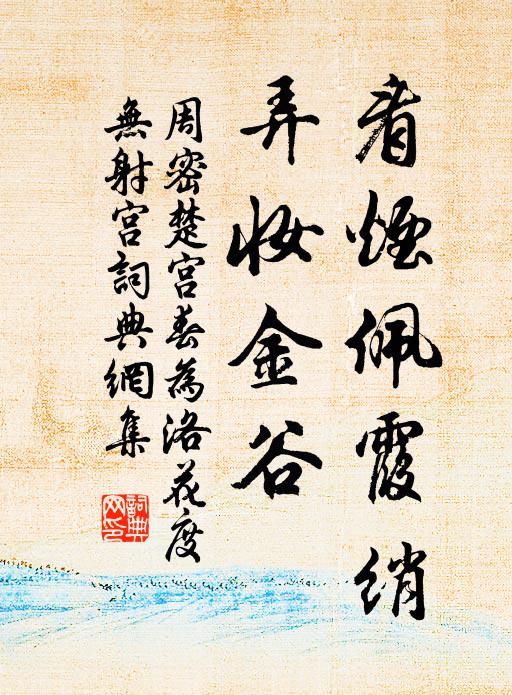 看煙佩霞綃
弄妝金谷
周密楚宮春為洛花度
無射宮詞典網集
詞典网印